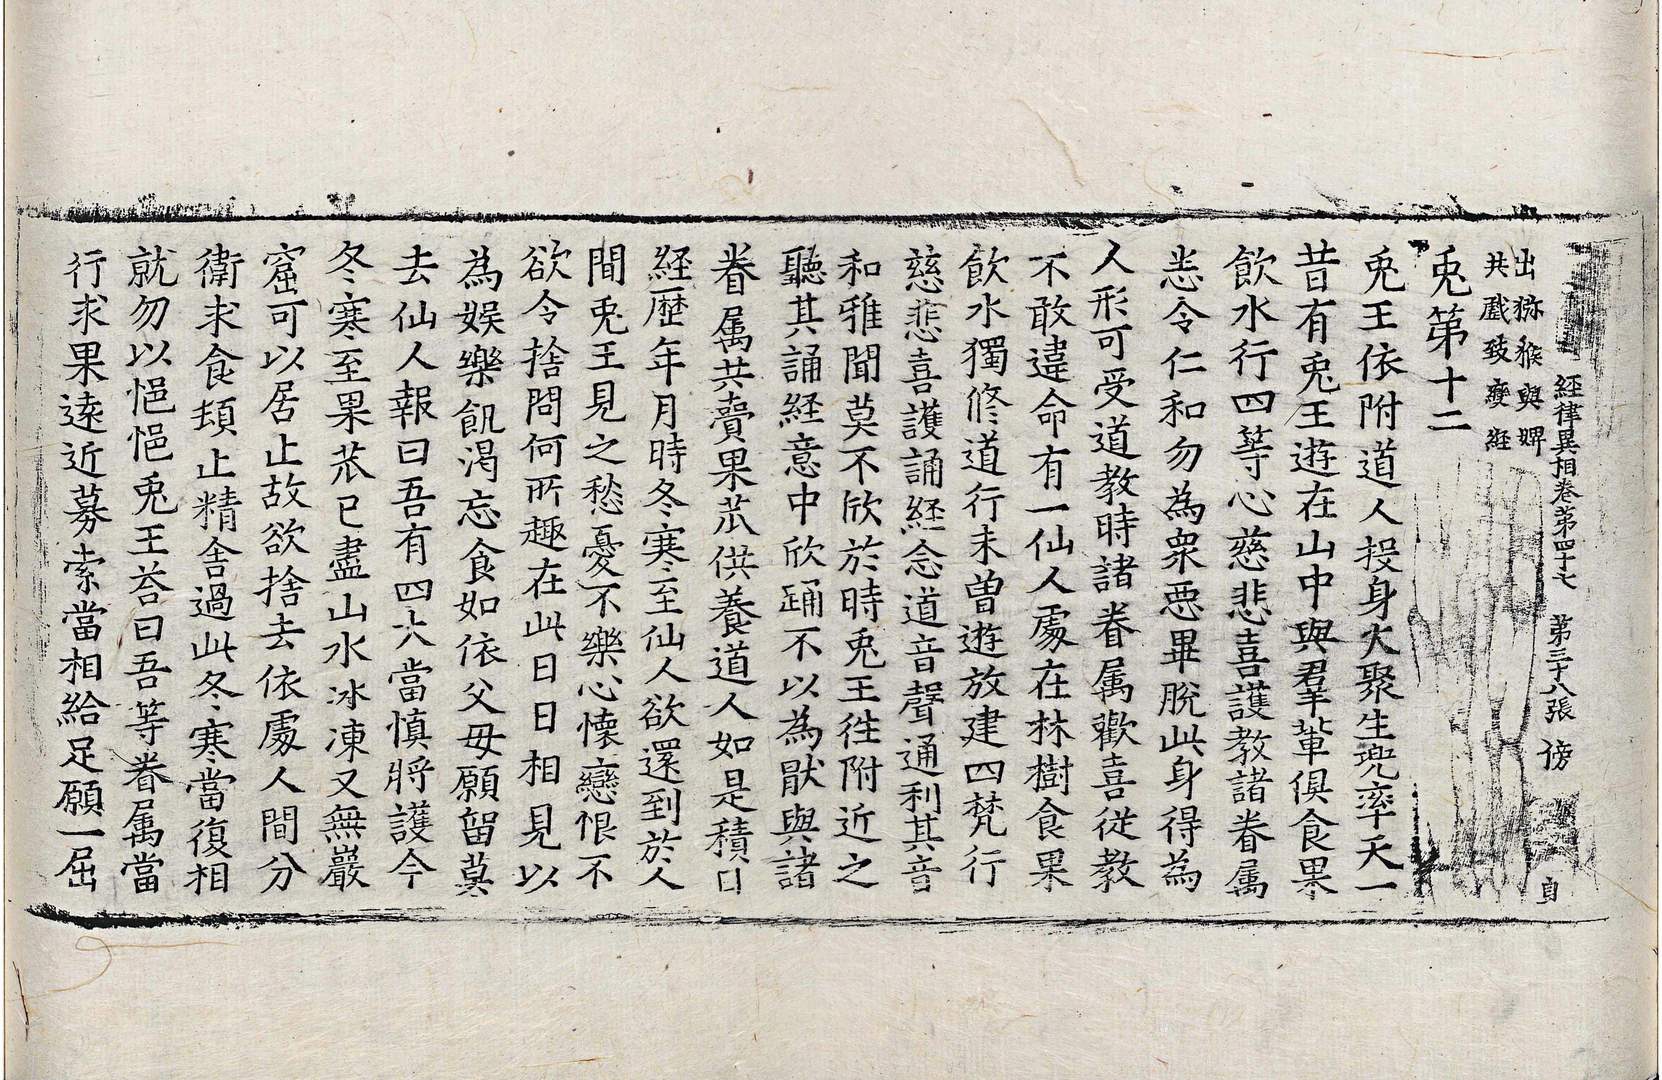 經律異相卷第四十七 第三十八張 傍 自
出猕猴與婢
共戲致變經
兎第十二
兎王依附道人投身火聚生兜率天一
昔有兎王遊在山中與羣輩俱食果
飲水行四等心慈悲喜護教諸眷属
悉令仁和勿為衆惡畢脫此身得為
人形可受道教時諸眷属歡喜従教
不敢違命有一仙人處在林樹食果
飲水獨修道行未曽遊放建四梵行
慈悲喜護誦経念道音聲通利其音
和雅聞莫不欣於時兎王往附近之
聽其誦経意中欣踊不以為猒與諸
眷属共賷果苽供養道人如是積日
経歴年月時冬寒至仙人欲還到於人
間兎王見之愁憂不樂心懐戀恨不
欲令捨問何所趣在此日日相見以
為娯樂飢渇忘食如依父母願留莫
去仙人報曰吾有四大當慎將護今
冬寒至果苽已盡山水冰凍又無巖
窟可以居止故欲捨去依處人間分
衛求食頓止精舎過此冬寒當復相
就勿以悒悒兎王荅曰吾等眷属當
行求果遠近募索當相給足願一屈